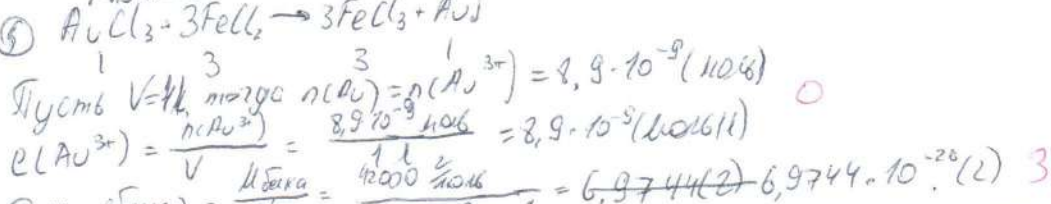 ⑤ AuCl₃ + 3FeCl₂ → 3FeCl₃ + Au↓
1 3 3 1
Пусть V=1л, тогда n(Au) = n(Au³⁺) = 8,9·10⁻⁹ (моль) 0
c(Au³⁺) = n(Au³⁺)/V = 8,9·10⁻⁹ моль/1 л = 8,9·10⁻⁹ (моль/л)
M белка = 42000 г/моль = 6,9744(г) 6,9744·10⁻²⁰ (г) 3